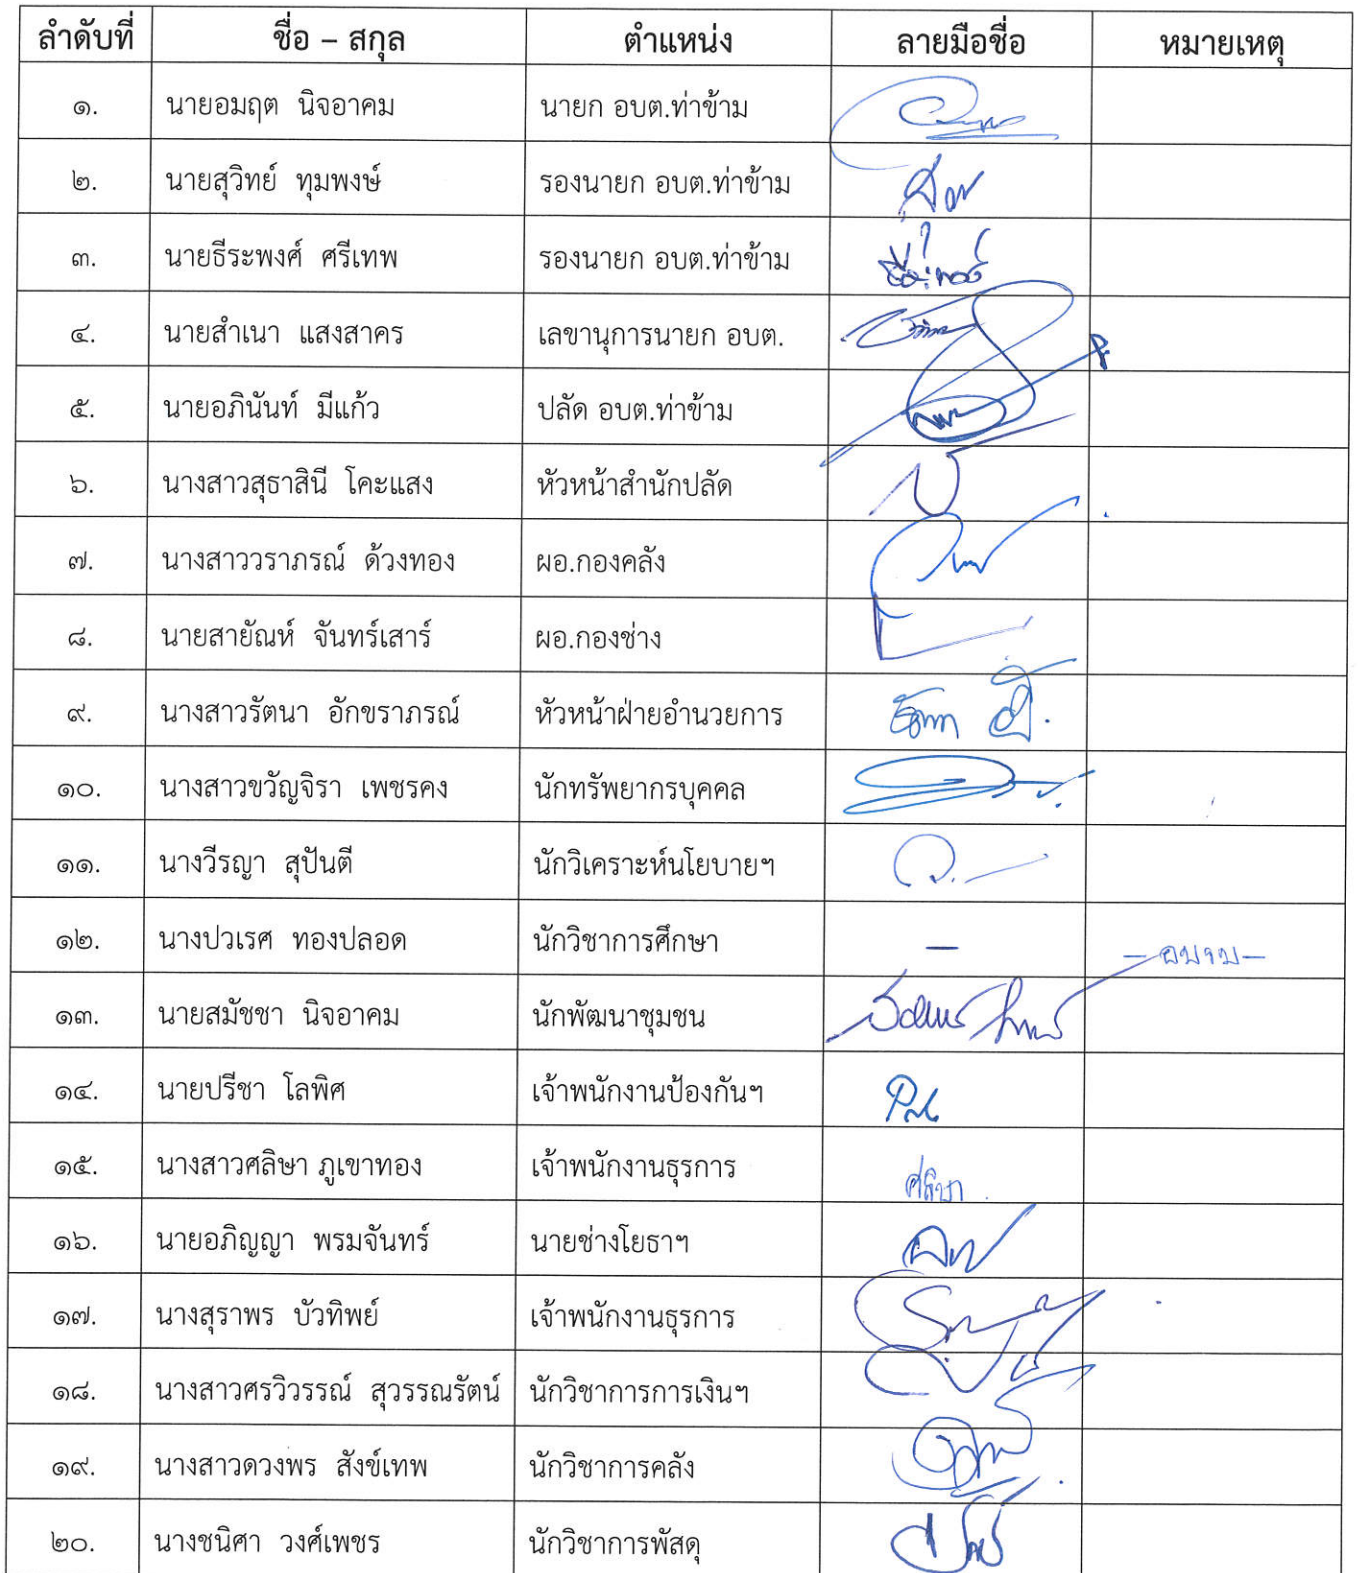 ลำดับที่ ชื่อ – สกุล ตำแหน่ง ลายมือชื่อ หมายเหตุ
๑. นายอมฤต นิจอาคม นายก อบต.ท่าข้าม
๒. นายสุวิทย์ ทุมพงษ์ รองนายก อบต.ท่าข้าม
๓. นายธีระพงศ์ ศรีเทพ รองนายก อบต.ท่าข้าม
๔. นายสำเนา แสงสาคร เลขานุการนายก อบต.
๕. นายอภินันท์ มีแก้ว ปลัด อบต.ท่าข้าม
๖. นางสาวสุธาสินี โคะแสง หัวหน้าสำนักปลัด
๗. นางสาววราภรณ์ ด้วงทอง ผอ.กองคลัง
๘. นายสายัณห์ จันทร์เสาร์ ผอ.กองช่าง
๙. นางสาวรัตนา อักขราภรณ์ หัวหน้าฝ่ายอำนวยการ
๑๐. นางสาวขวัญจิรา เพชรคง นักทรัพยากรบุคคล
๑๑. นางวีรญา สุปันตี นักวิเคราะห์นโยบายฯ
๑๒. นางปวเรศ ทองปลอด นักวิชาการศึกษา – – อบรม –
๑๓. นายสมัชชา นิจอาคม นักพัฒนาชุมชน
๑๔. นายปรีชา โลพิศ เจ้าพนักงานป้องกันฯ
๑๕. นางสาวศลิษา ภูเขาทอง เจ้าพนักงานธุรการ ศลิษา
๑๖. นายอภิญญา พรมจันทร์ นายช่างโยธาฯ
๑๗. นางสุราพร บัวทิพย์ เจ้าพนักงานธุรการ
๑๘. นางสาวศรวิวรรณ์ สุวรรณรัตน์ นักวิชาการการเงินฯ
๑๙. นางสาวดวงพร สังข์เทพ นักวิชาการคลัง
๒๐. นางชนิศา วงศ์เพชร นักวิชาการพัสดุ